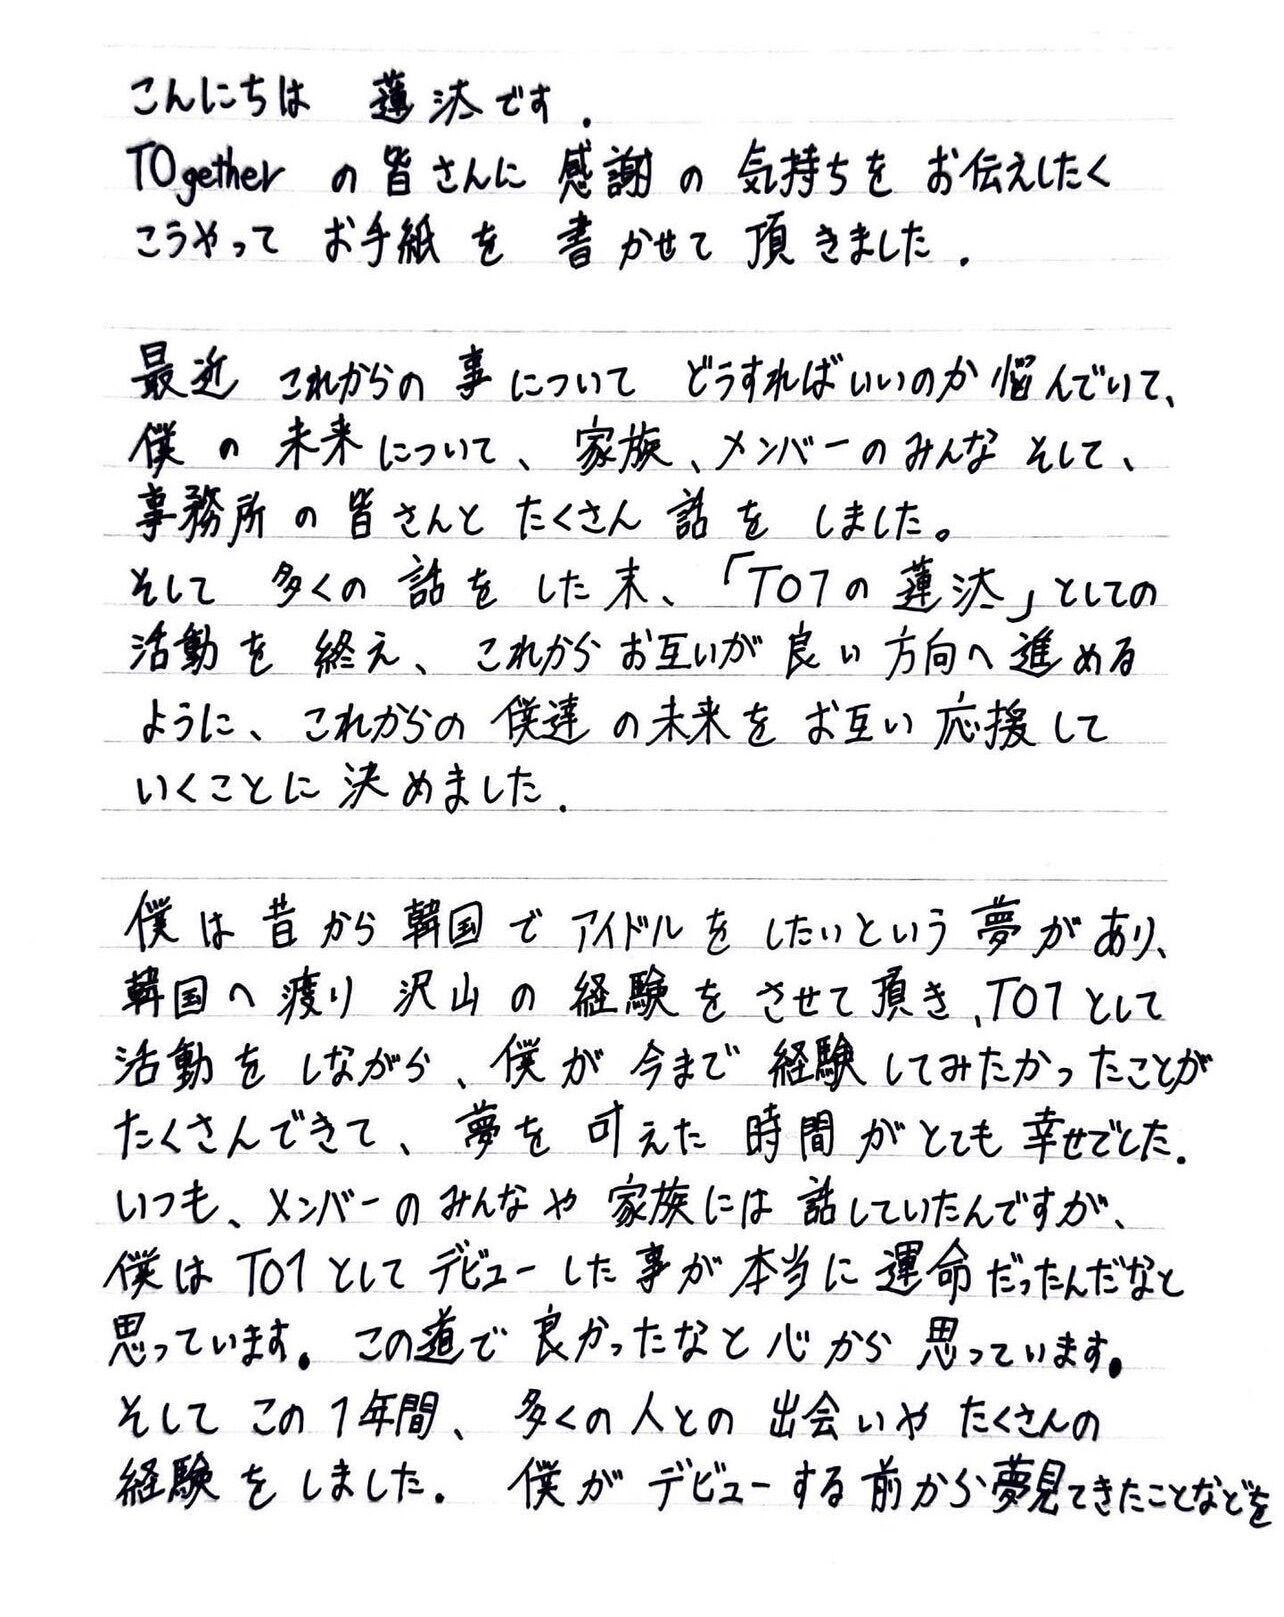 こんにちは 蓮汰です.
TOgether の皆さんに 感謝の 気持ちを お伝えしたく
こうやって お手紙を 書かせて 頂きました.
最近 これからの 事について どうすればいいのか 悩んでいて、
僕の 未来について、家族、メンバーのみんな そして、
事務所の 皆さんと たくさん 話を しました。
そして 多くの 話を した末、「TO1の 蓮汰」としての
活動を 終え、これから お互いが 良い 方向へ 進める
ように、これからの 僕達の未来を お互い 応援して
いくことに 決めました.
僕は 昔から 韓国で アイドルを したいという 夢が あり、
韓国へ 渡り 沢山の 経験を させて 頂き、TO1として
活動を しながら、僕が 今まで 経験してみたかったことが
たくさんできて、夢を 叶えた 時間が とても 幸せでした.
いつも、メンバーの みんなや 家族には 話していたんですが、
僕は TO1として デビューした 事が 本当に 運命だったんだなと
思っています。この道で 良かったなと 心から 思っています。
そして この1年間、多くの人との 出会いや たくさんの
経験を しました. 僕が デビューする 前から 夢見てきたことなどを